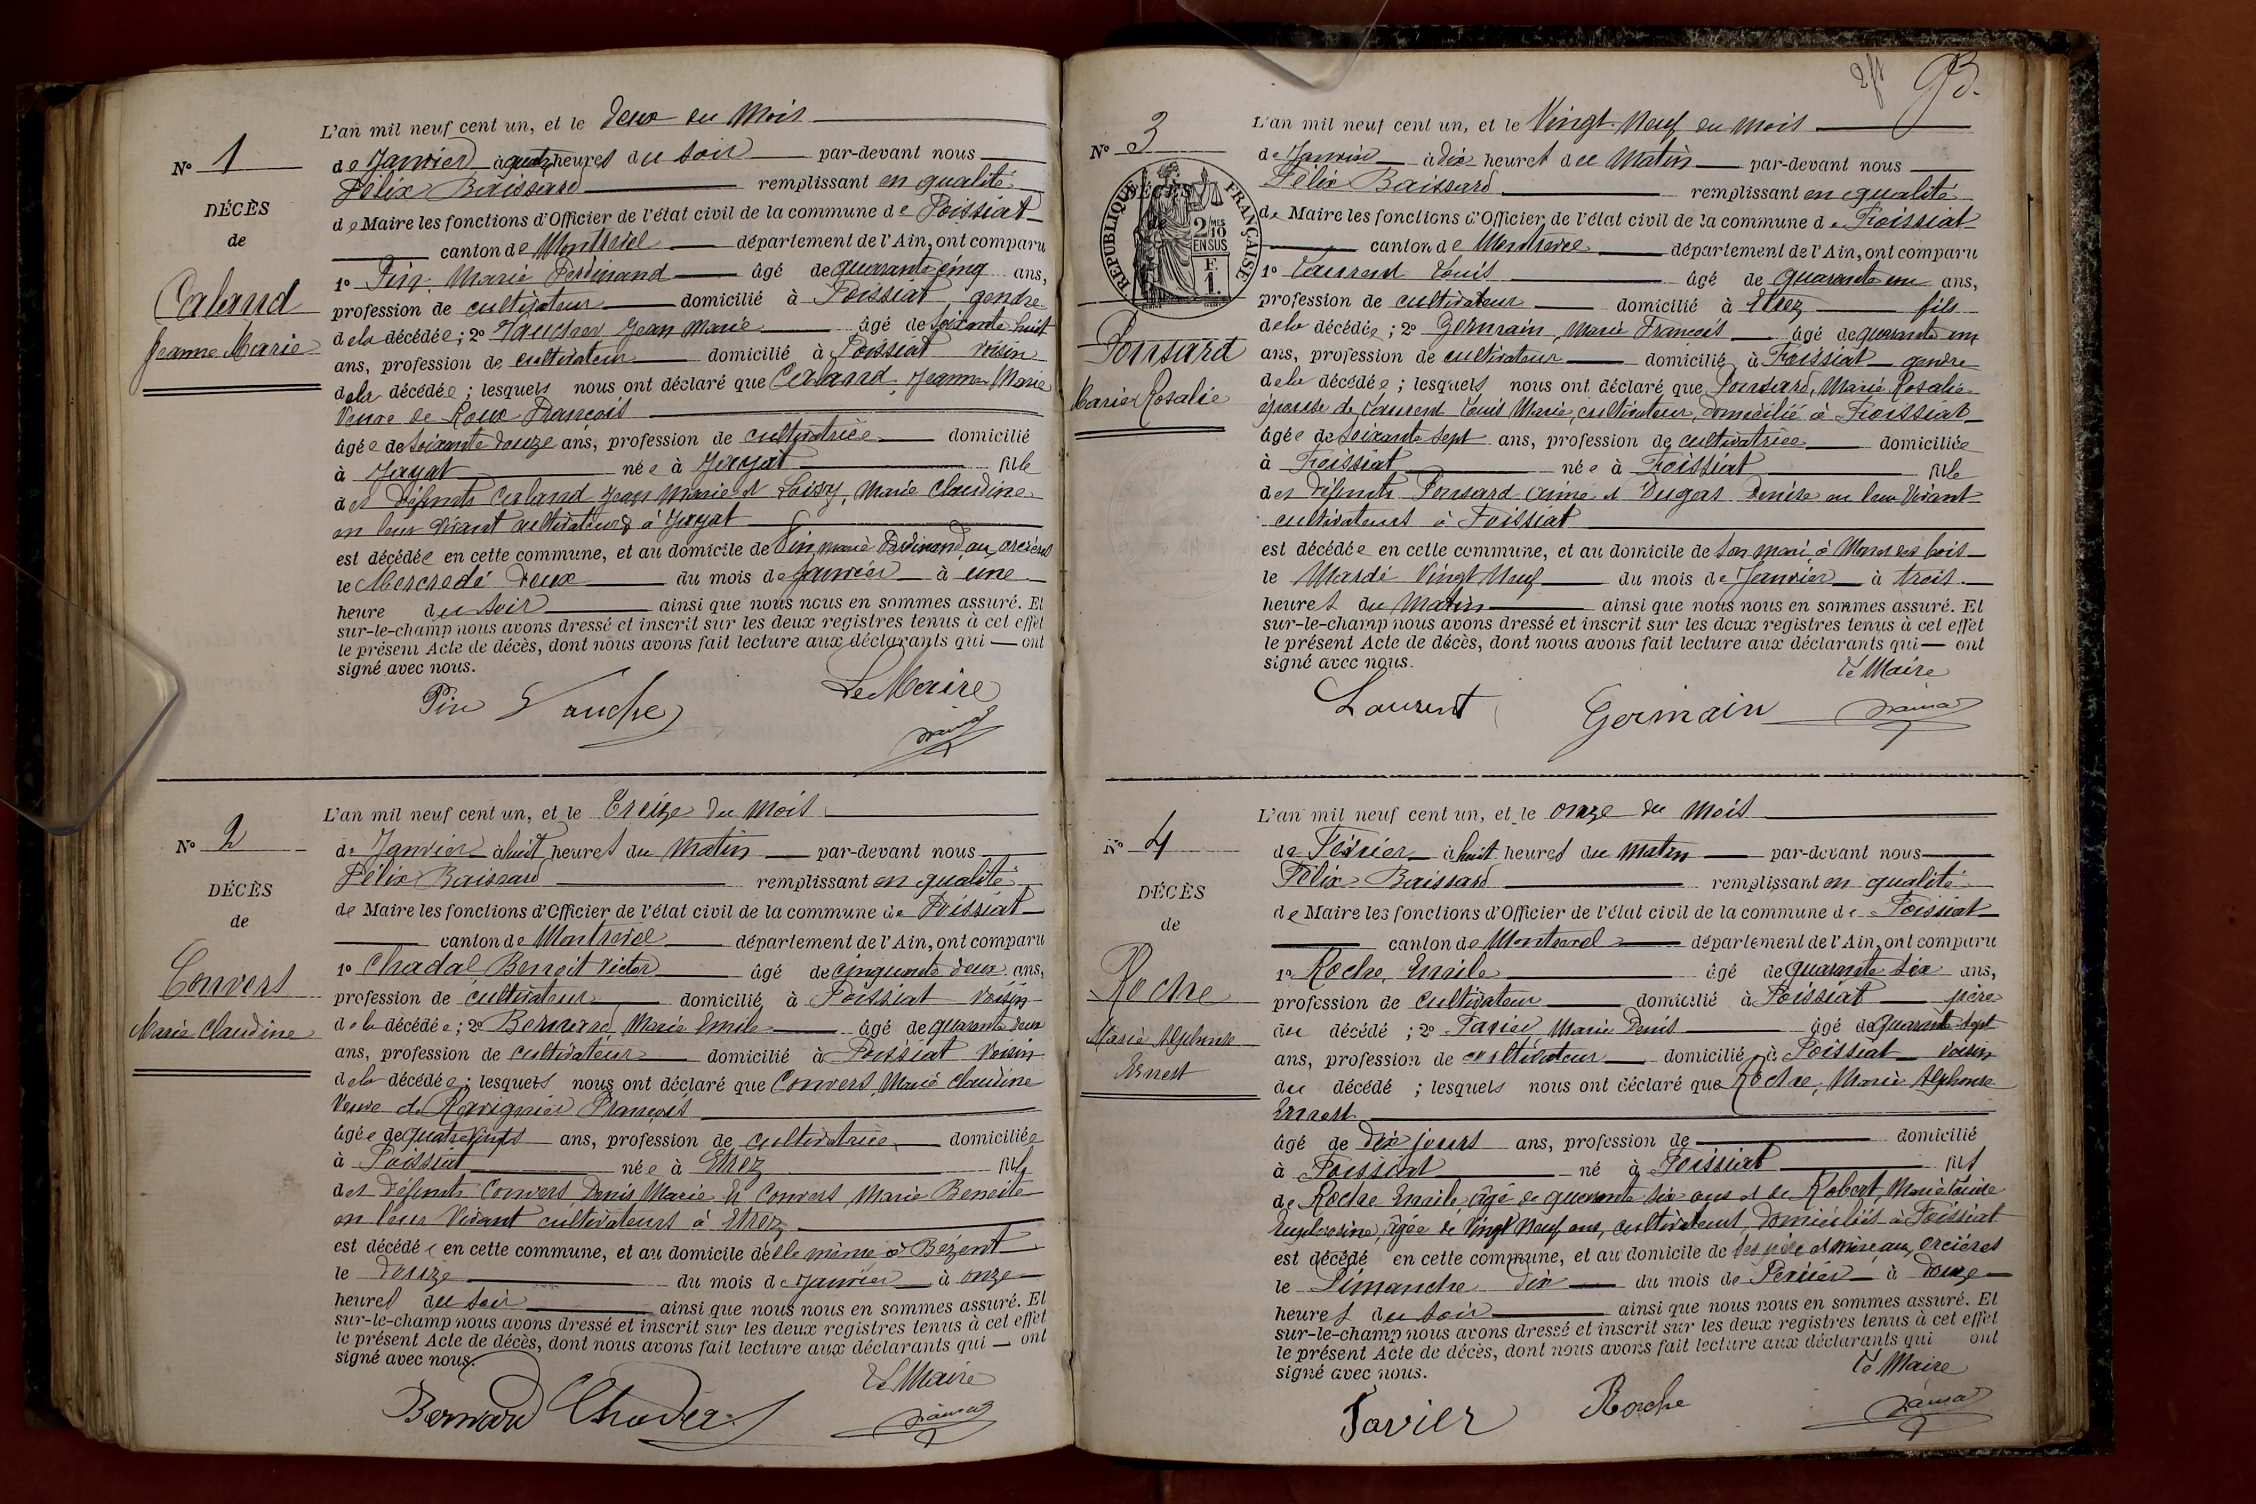 N° 1
DÉCÈS
de
Caland
Jeanne Marie
L'an mil neuf cent un, et le deux du mois
de Janvier à quatre heures du soir par-devant nous
Félix Baissard remplissant en qualité
de Maire les fonctions d'Officier de l'état civil de la commune de Foissiat
canton de Montrevel département de l'Ain, ont comparu
1° Pin, Marie Ferdinand âgé de quarante cinq ans,
profession de cultivateur domicilié à Foissiat gendre
de la décédée ; 2° Vaucher Jean Marie âgé de soixante huit
ans, profession de cultivateur domicilié à Foissiat voisin
de la décédée ; lesquels nous ont déclaré que Caland Jeanne Marie
Veuve de Roux François
âgée de soixante douze ans, profession de cultivatrice domicilié
à Jayat née à Jayat fille
des défunts Caland Jean Marie et Loisy, Marie Claudine
en leur vivant cultivateurs à Jayat
est décédée en cette commune, et au domicile de Pin, Marie Ferdinand au Orcières
le Mercredi deux du mois de Janvier à une
heure du soir ainsi que nous nous en sommes assuré. Et
sur-le-champ nous avons dressé et inscrit sur les deux registres tenus à cet effet
le présent Acte de décès, dont nous avons fait lecture aux déclarants qui ont
signé avec nous.
Le Maire
Pin Vaucher
N° 2
DÉCÈS
de
Convers
Marie Claudine
L'an mil neuf cent un, et le Treize du mois
de Janvier à huit heures du matin par-devant nous
Félix Baissard remplissant en qualité
de Maire les fonctions d'Officier de l'état civil de la commune de Foissiat
canton de Montrevel département de l'Ain, ont comparu
1° Chadal Benoit Victor âgé de cinquante deux ans,
profession de cultivateur domicilié à Foissiat voisin
de la décédée ; 2° Bernard, Marie Emile âgé de quarante deux
ans, profession de cultivateur domicilié à Foissiat voisin
de la décédée ; lesquels nous ont déclaré que Convers, Marie Claudine
Veuve de Ravignier François
âgée de quatre vingts ans, profession de cultivatrice domiciliée
à Foissiat née à Etrez fille
des défunts Convers, Denis Marie et Convers, Marie Benoite
en leur vivant cultivateurs à Etrez
est décédée en cette commune, et au domicile d'elle même à Bézent
le Douze du mois de Janvier à onze
heures du soir ainsi que nous nous en sommes assuré. Et
sur-le-champ nous avons dressé et inscrit sur les deux registres tenus à cet effet
le présent Acte de décès, dont nous avons fait lecture aux déclarants qui ont
signé avec nous.
Le Maire
Bernard
93.
N° 3
DÉCÈS
RÉPUBLIQUE FRANÇAISE
2/10 MES
EN SUS
F.
1.
Ponsard
Marie Rosalie
L'an mil neuf cent un, et le Vingt Neuf du mois
de Janvier à dix heures du Matin par-devant nous
Félix Baissard remplissant en qualité
de Maire les fonctions d'Officier de l'état civil de la commune de Foissiat
canton de Montrevel département de l'Ain, ont comparu
1° Laurent Louis âgé de quarante un ans,
profession de cultivateur domicilié à Etrez fils
de la décédée ; 2° Germain, Marie François âgé de quarante un
ans, profession de cultivateur domicilié à Foissiat gendre
de la décédée ; lesquels nous ont déclaré que Ponsard, Marie Rosalie
épouse de Laurent Louis Marie, cultivateur, domicilié à Foissiat
âgée de soixante sept ans, profession de cultivatrice domiciliée
à Foissiat née à Foissiat fille
des défunts Ponsard Aimé et Dugas Denise en leur vivant
cultivateurs à Foissiat
est décédée en cette commune, et au domicile de son mari à
le Mardi Vingt Neuf du mois de Janvier à trois
heures du Matin ainsi que nous nous en sommes assuré. Et
sur-le-champ nous avons dressé et inscrit sur les deux registres tenus à cet effet
le présent Acte de décès, dont nous avons fait lecture aux déclarants qui ont
signé avec nous.
Le Maire
Laurent Germain
N° 4
DÉCÈS
de
Roche
Marie Alphonse
Ernest
L'an mil neuf cent un, et le onze du mois
de Février à huit heures du matin par-devant nous
Félix Baissard remplissant en qualité
de Maire les fonctions d'Officier de l'état civil de la commune de Foissiat
canton de Montrevel département de l'Ain, ont comparu
1° Roche, Emile âgé de quarante six ans,
profession de cultivateur domicilié à Foissiat père
du décédé ; 2° Favier, Marie Denis âgé de quarante sept
ans, profession de cultivateur domicilié à Foissiat voisin
du décédé ; lesquels nous ont déclaré que Roche, Marie Alphonse
Ernest
âgé de dix jours ans, profession de domicilié
à Foissiat né à Foissiat fils
de Roche Emile âgé de quarante six ans et de Robert, Marie Louise
Euphrosine, âgée de vingt neuf ans, cultivateurs, domiciliés à Foissiat
est décédé en cette commune, et au domicile de ses père et mère au Orcières
le Dimanche dix du mois de Février à douze
heures du soir ainsi que nous nous en sommes assuré. Et
sur-le-champ nous avons dressé et inscrit sur les deux registres tenus à cet effet
le présent Acte de décès, dont nous avons fait lecture aux déclarants qui ont
signé avec nous.
Le Maire
Favier Roche